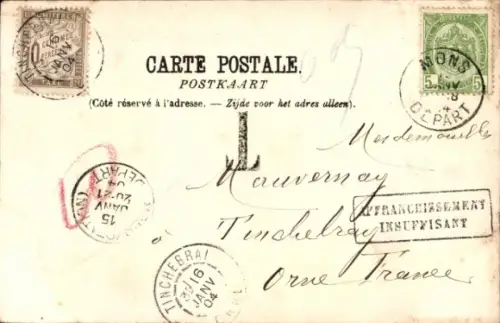 CARTE POSTALE.
POSTKAART
(Côté réservé à l'adresse. – Zijde voor het adres alleen).
T
Mesdemoiselles
Mauvernay
Tinchebray
Orne France
AFFRANCHISSEMENT
INSUFFISANT
MONS
JANV
DÉPART
5 5
TINCHEBRAI
16
JANV
04
15
JANV
20-21
DEPART
JANV
04